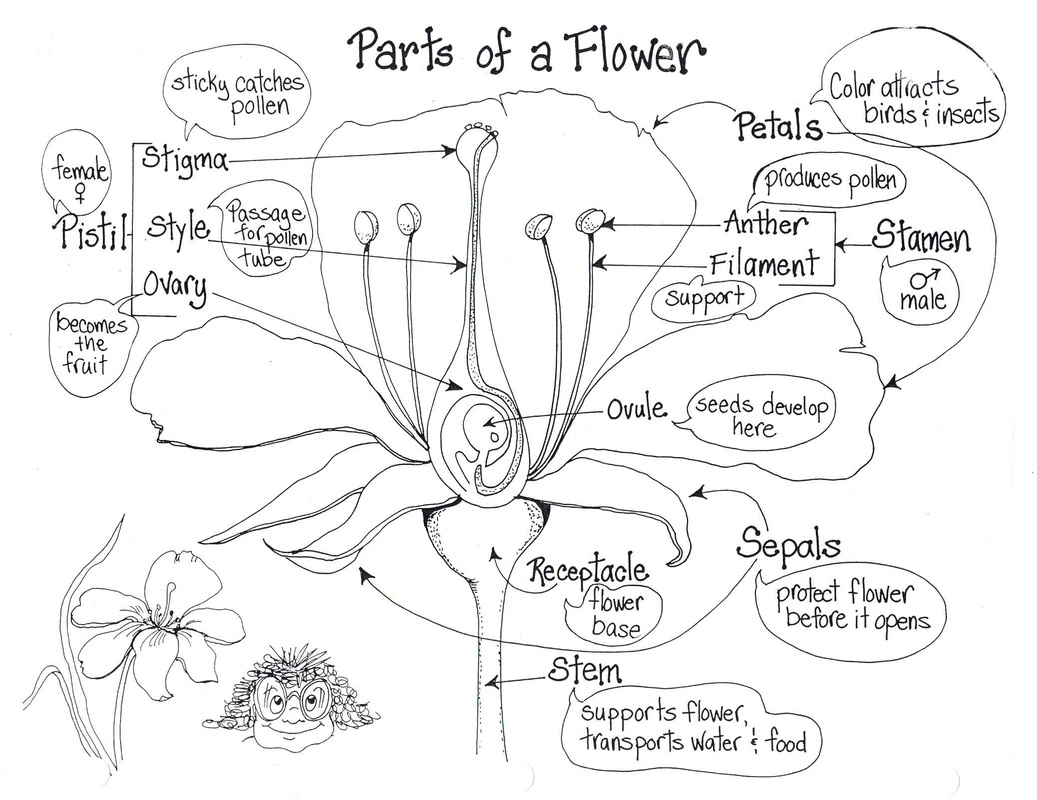 Parts of a Flower
sticky catches
pollen
Color attracts
birds & insects
Petals
female
♀
Stigma
produces pollen
Pistil
Style
Passage
for pollen
tube
Anther
Stamen
Filament
♂
male
support
Ovary
becomes
the
fruit
Ovule
seeds develop
here
Sepals
protect flower
before it opens
Receptacle
flower
base
Stem
supports flower,
transports water & food